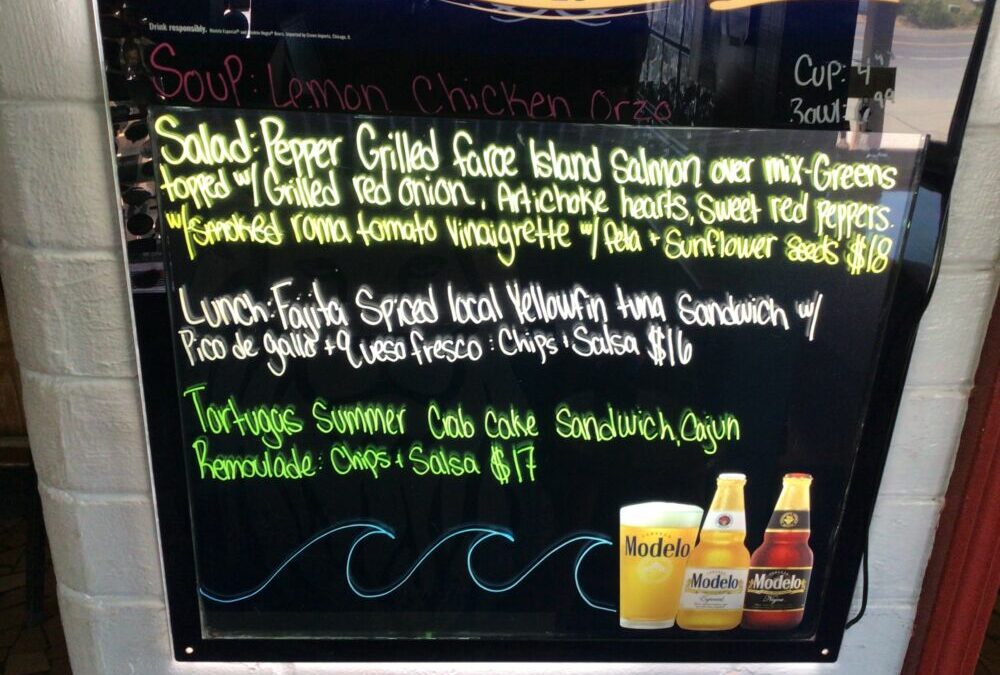 Drink responsibly.
Soup: Lemon Chicken Orzo
Cup: 4
Bowl:
Salad: Pepper Grilled Faroe Island Salmon over mix-Greens
topped w/ Grilled red onion, Artichoke hearts, Sweet red peppers.
w/ smoked roma tomato vinaigrette w/ feta + Sunflower seeds $18
Lunch: Fajita Spiced local Yellowfin tuna Sandwich w/
Pico de gallo + Queso fresco : Chips + Salsa $16
Tortugas Summer Crab Cake Sandwich, Cajun
Remoulade: Chips + Salsa $17
Modelo
Modelo
Especial
Modelo
Negra